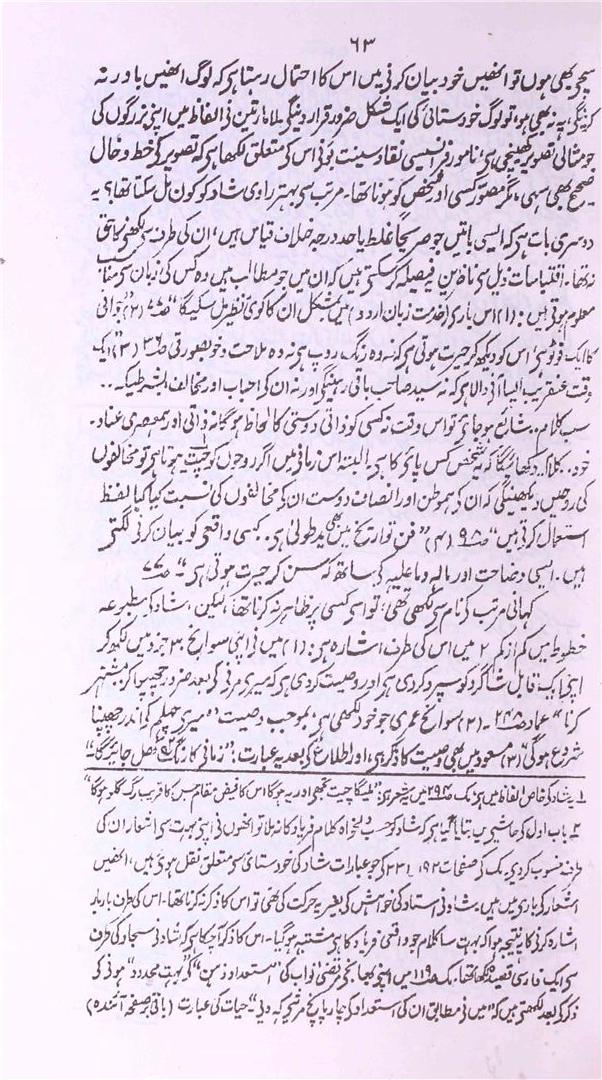 ۶۳
سچی بھی ہوں تو انھیں خود بیان کرنی میں اس کا احتمال رہتا ہے کہ لوگ انھیں باور نہ
کرینگے، یہ نہ بھی ہو، تو لوگ خودستائی کی ایک شکل ضرور قرار دینگے۔ لامارتین نی الفاظ میں اپنی بزرگوں کی
جو مثالی تصویر کھینچی ہی، نامور فرانسیسی نقاد سینت بو نی اس کی متعلق لکھا ہی کہ تصویر کی خط و خال
صحیح بھی سہی، مگر مصور کسی اور شخص کو ہونا تھا۔ مرتب سی بہتر راوی شاد کو کون مل سکتا تھا؟ یہ
دوسری بات ہی کہ ایسی باتیں جو صریحاً غلط یا حد درجہ خلاف قیاس ہیں، ان کی طرف سے لکھنی کا حق
نہ تھا۔ اقتباسات ذیل سی ناظرین فیصلہ کر سکتی ہیں کہ ان میں جو مطالب ہیں وہ کس کی زبان سی مناسب
معلوم ہوتی ہیں : (۱) اس باری (خدمت زبان اردو) میں بمشکل ان کا کوئی نظیر مل سکیگا" ص۷۷ (۲) "جوانی
کا ایک فوٹو ہی اس کو دیکھ کر حیرت ہوتی ہی کہ نہ وہ رنگ روپ ہی نہ وہ ملاحت و خوبصورتی ص۳۶ (۳) "ایک
وقت عنقریب ایسا آنی والا ہی کہ نہ سید صاحب باقی رہینگی اور نہ ان کی احباب اور مخالف بشرطیکہ ..
سب کلام .. شائع ہو جائی تو اس وقت نہ کسی کو ذاتی دوستی کا لحاظ ہوگا نہ ذاتی اور ہمعصری عناد۔
خود .. کلام دکھائیگا کہ یہ شخص کس پائی کا ہی۔ البتہ اس زمانی میں اگر روحوں کو حِس ہوتا ہی تو مخالفوں
کی روحیں دیکھینگی کہ ان کی ہموطن اور انصاف دوست ان کی مخالفوں کی نسبت کیا کیا لفظ
استعمال کرتی ہیں" ص۹۸ (۴) "فن تواریخ میں بھی ید طولیٰ ہی۔ کسی واقعی کو بیان کرنی لگتی
ہیں .. ایسی وضاحت اور مالہ و ما علیہ کی ساتھ کہ سن کر حیرت ہوتی ہی۔" ص۷۷
کہانی مرتب کی نام سی لکھی تھی، تو اسی کسی پر ظاہر نہ کرنا تھا، لیکن، شاد کی مطبوعہ
خطوط میں کم از کم ۲ میں اس کی طرف اشارہ ہی : (۱) میں نی اپنی سوانح ۳۰ جزو میں لکھ کر
اپنی ایک قابل شاگرد کو سپرد کر دی ہی اور وصیت کر دی ہی کہ میری مرنی کی بعد ضرور چھپوا کر مشتہر
کرنا" عماد ص۲۴۸ - (۲) سوانح عمری جو خود لکھی ہی، بموجب وصیت "میری چہلم کی اندر چھپنا
شروع ہوگی" (۳) مسعود میں بھی وصیت کا ذکر ہی، اور اطلاع کی بعد یہ عبارت : "زمانی کا رنگ کھل جائیگا۔"
۱ یہ شاد کی خاص الفاظ ہیں، ہی، مک ص۲۹۴ میں یہ شعر ہی:
۲ باب اول کی حاشیی میں بتایا گیا ہی کہ شاد کو حسب دلخواہ کلام فریاد کا نہ ملا تو انھوں نی اپنی بہت سی اشعار ان کی
طرف منسوب کر دیی۔ مک کی صفحات ۱۹۲ ، ۲۳۱ کی جو عبارات شاد کی خودستائی سی متعلق نقل ہوئی ہیں، انھیں
اشعار کی باری میں ہیں۔ شاد نی استاد کی خواہش کی بغیر یہ حرکت کی تھی تو اس کا ذکر نہ کرنا تھا۔ اس کی طرف بار بار
اشارہ کرنی کا نتیجہ ہوا کہ بہت سا کلام جو واقعی فریاد کا ہی مشتبہ ہو گیا۔ اس کا ذکر آ چکا ہی کہ شاد نی سجاد کی طرف
سی ایک فارسی قصیدہ لکھا تھا۔ مک ص۱۱۹ میں اپنی بھانجی مرتضیٰ نواب کی "استعداد و ذہن" کی بہت محدود" ہونی کی
ذکر کی بعد لکھتی ہیں کہ "میں نی مطابق ان کی استعداد کی چار پانچ مرثیی کہہ دیی۔" حیات کی عبارت (باقی بر صفحہ آئندہ)